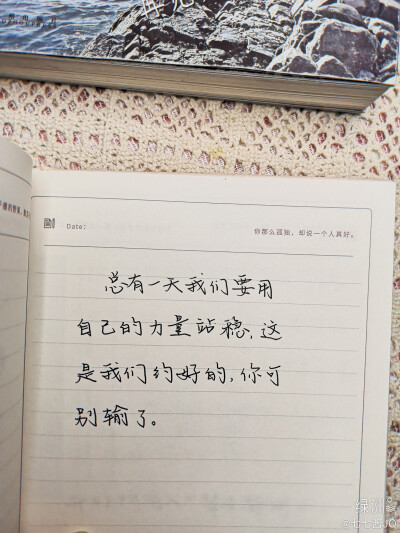 Date:
你那么孤独，却说一个人真好。
总有一天我们要用
自己的力量站稳，这
是我们约好的，你可
别输了。
绿洲
@七七酱JQ